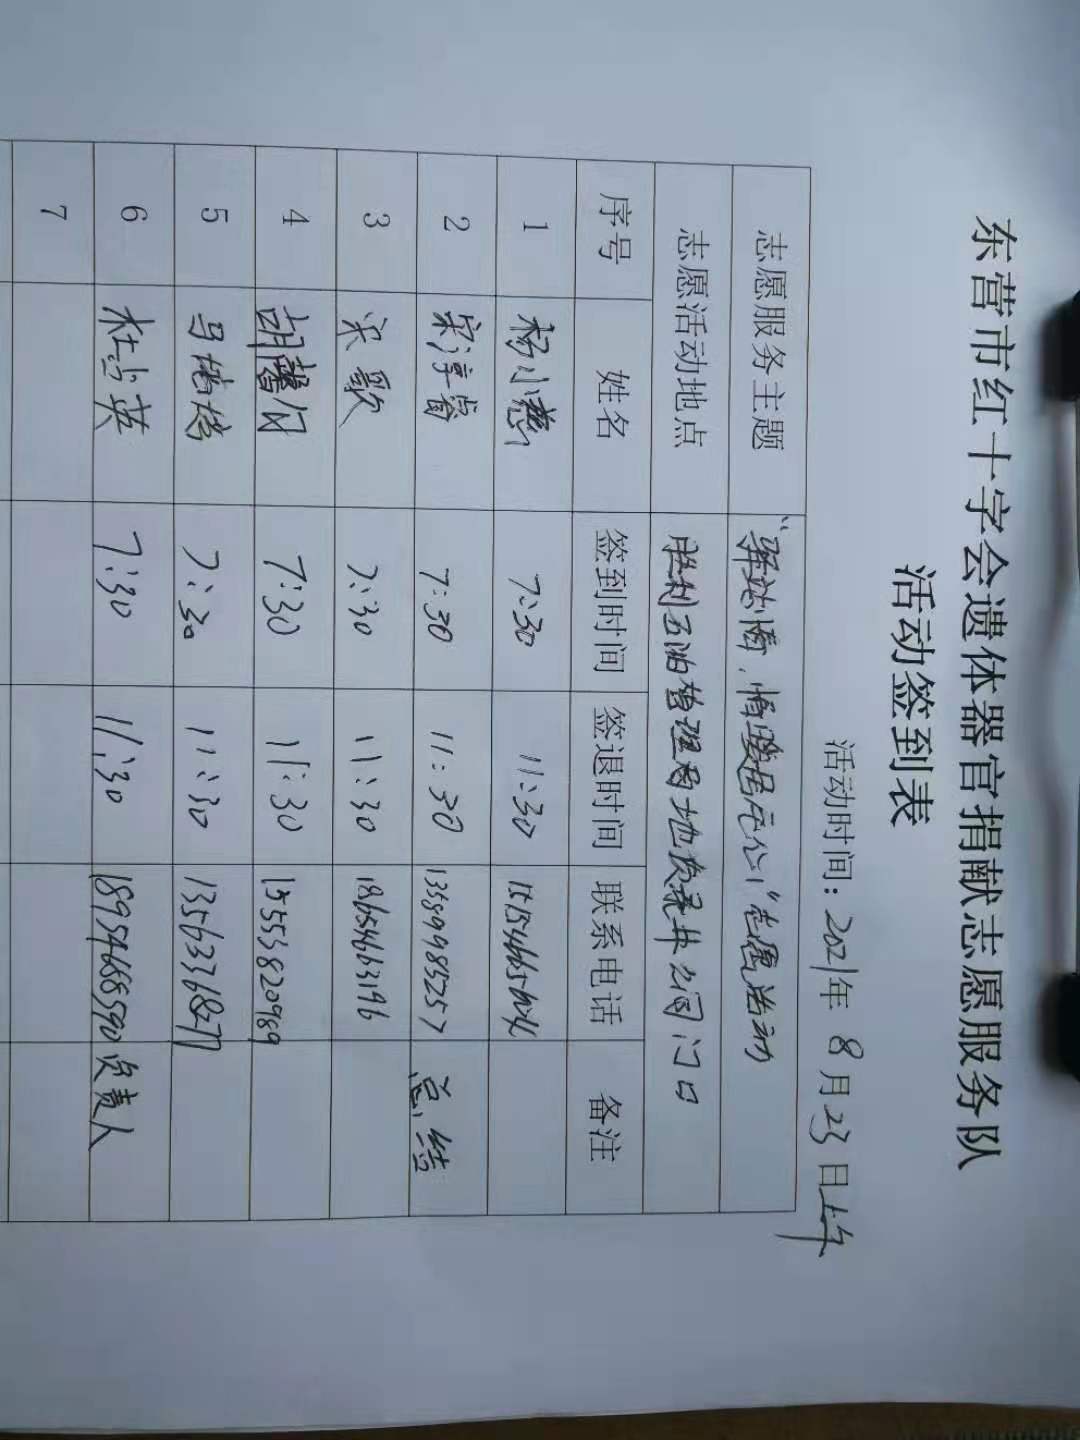 东营市红十字会遗体器官捐献志愿服务队
活动签到表
活动时间：2021年 8月23日上午
志愿服务主题 “驿站情，情暖居民心”志愿活动
志愿活动地点 胜利石油管理局地质录井公司门口
序号 姓名 签到时间 签退时间 联系电话 备注
1 杨小 7:30 11:30
2 宋淳睿 7:30 11:30 13589985257 总结
3 宋歌 7:30 11:30 18654663196
4 胡馨 7:30 11:30 15553820989
5 马 7:30 11:30 13563368277
6 杜当英 7:30 11:30 18954668590 负责人
7